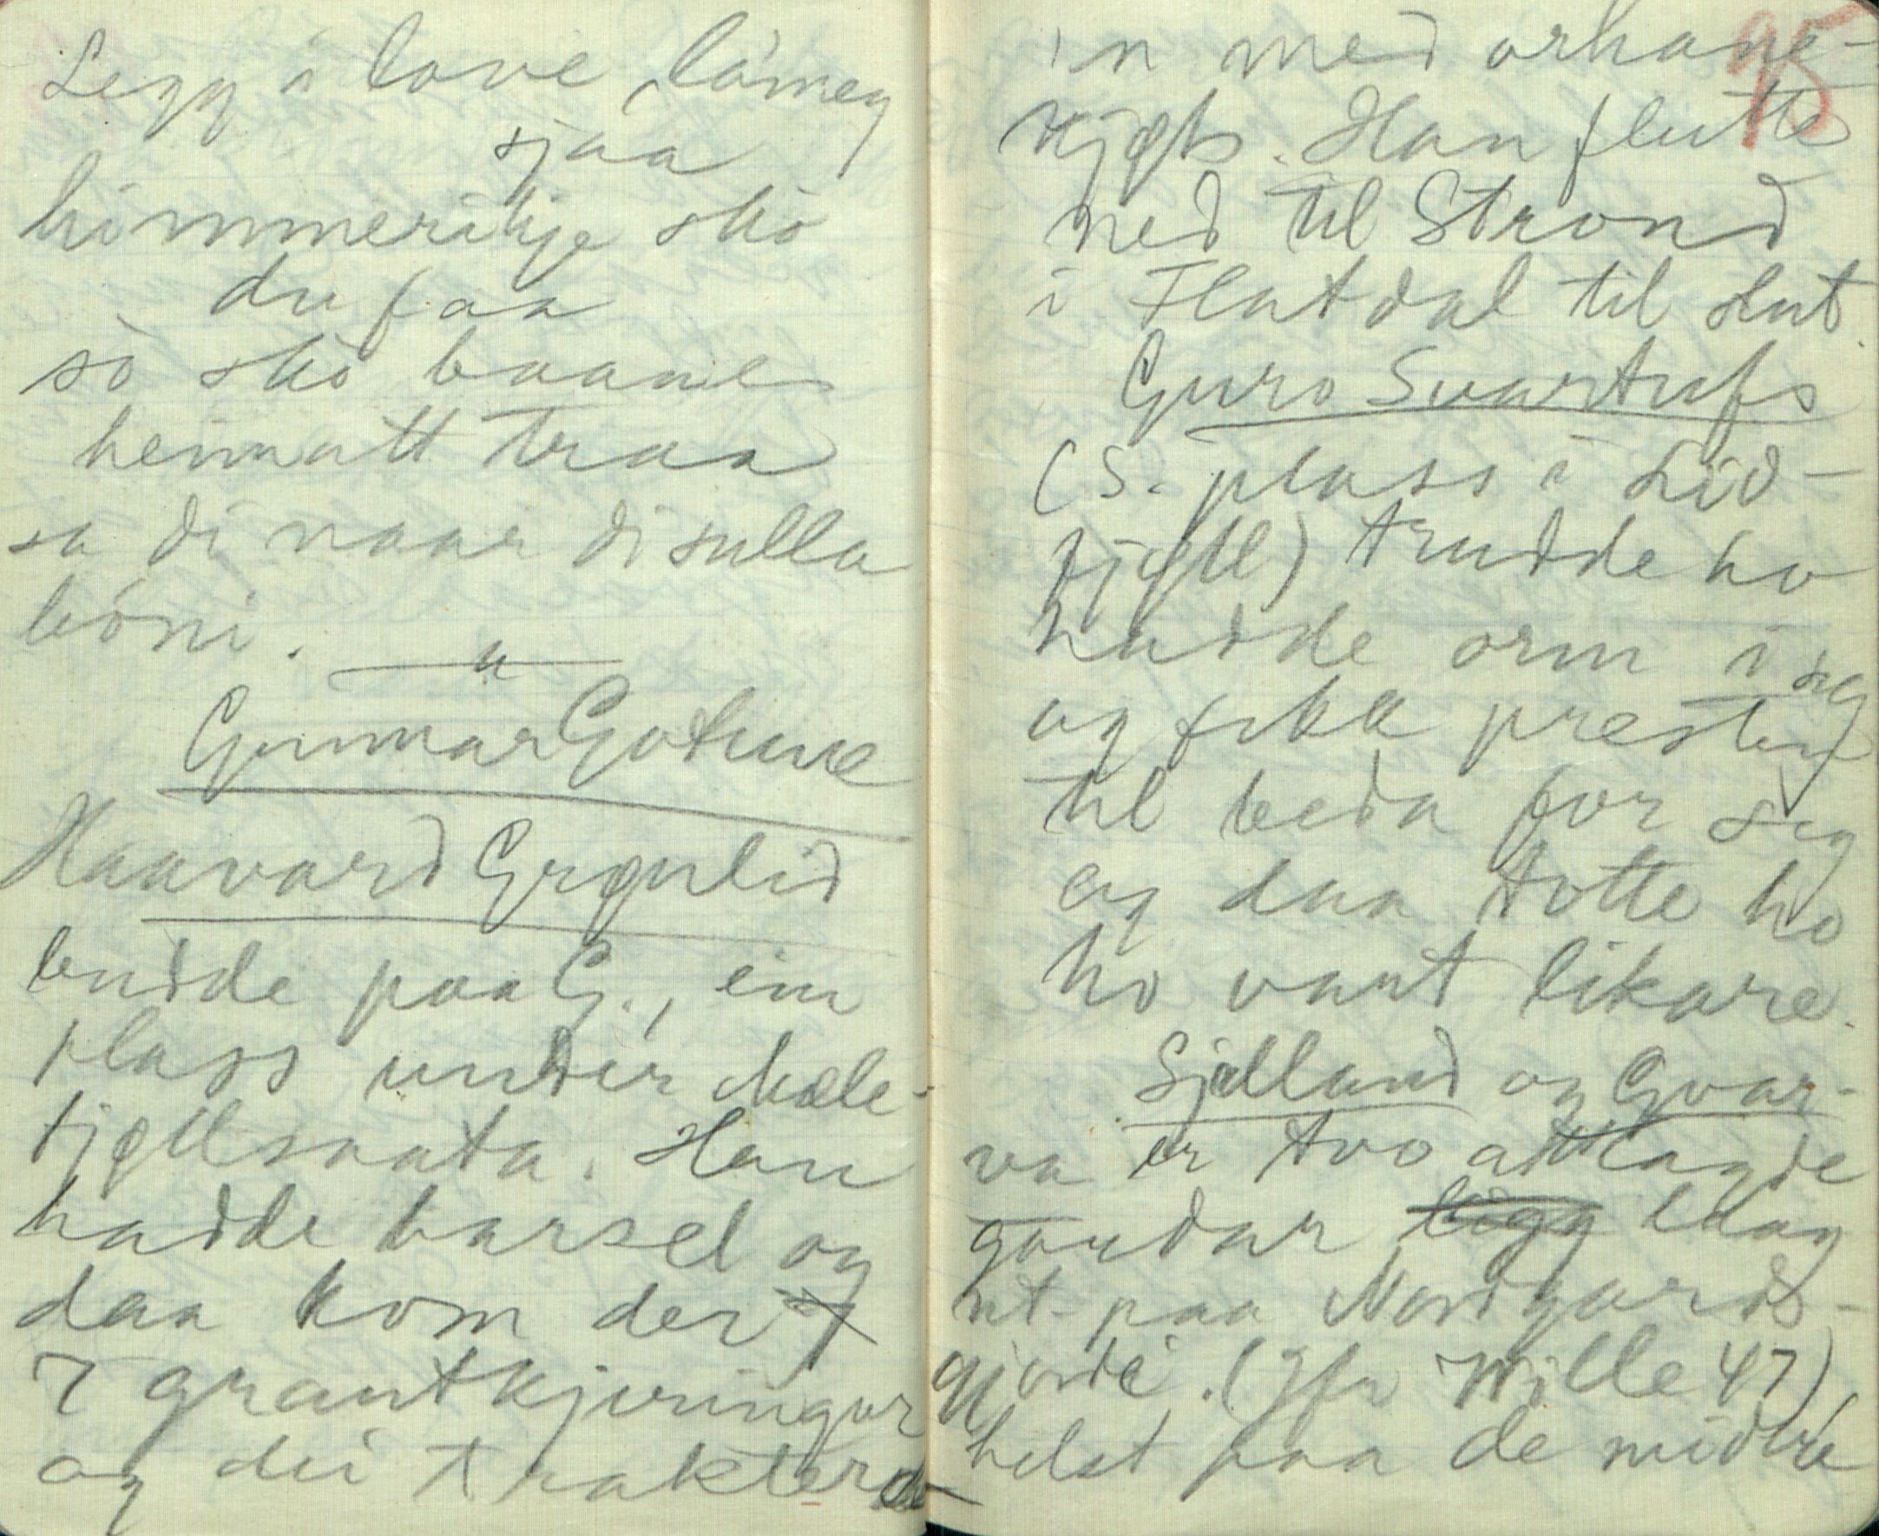 Legg i love, lò meg
sjaa
himmerikje sko
du faa
so sko baane
heimatt traa
sa di naar di sulla
bóni.
Gunnar Gotune
Haavard Grønlid
budde paa G., ein
plass under Mæle-
tjøllsnata. Han
hadde barsel og
daa kom der
7 grantkjeringar
og dei trakter
95
in med orhane-
kjøt. Han flutte
ned til Strond
i Flatdal til slut.
Guro Svartufs
(S. plass i Lid-
tjøll) trudde ho
hadde orm i seg
og fekk presten
til beda for seg
og daa totte ho
ho vart likare.
Sjælland og Gvar-
va er tvo attlagde
gardar ligg idag
ut paa Nordgards-
gjorde. (Jfr Wille 47)
helst paa de midtre